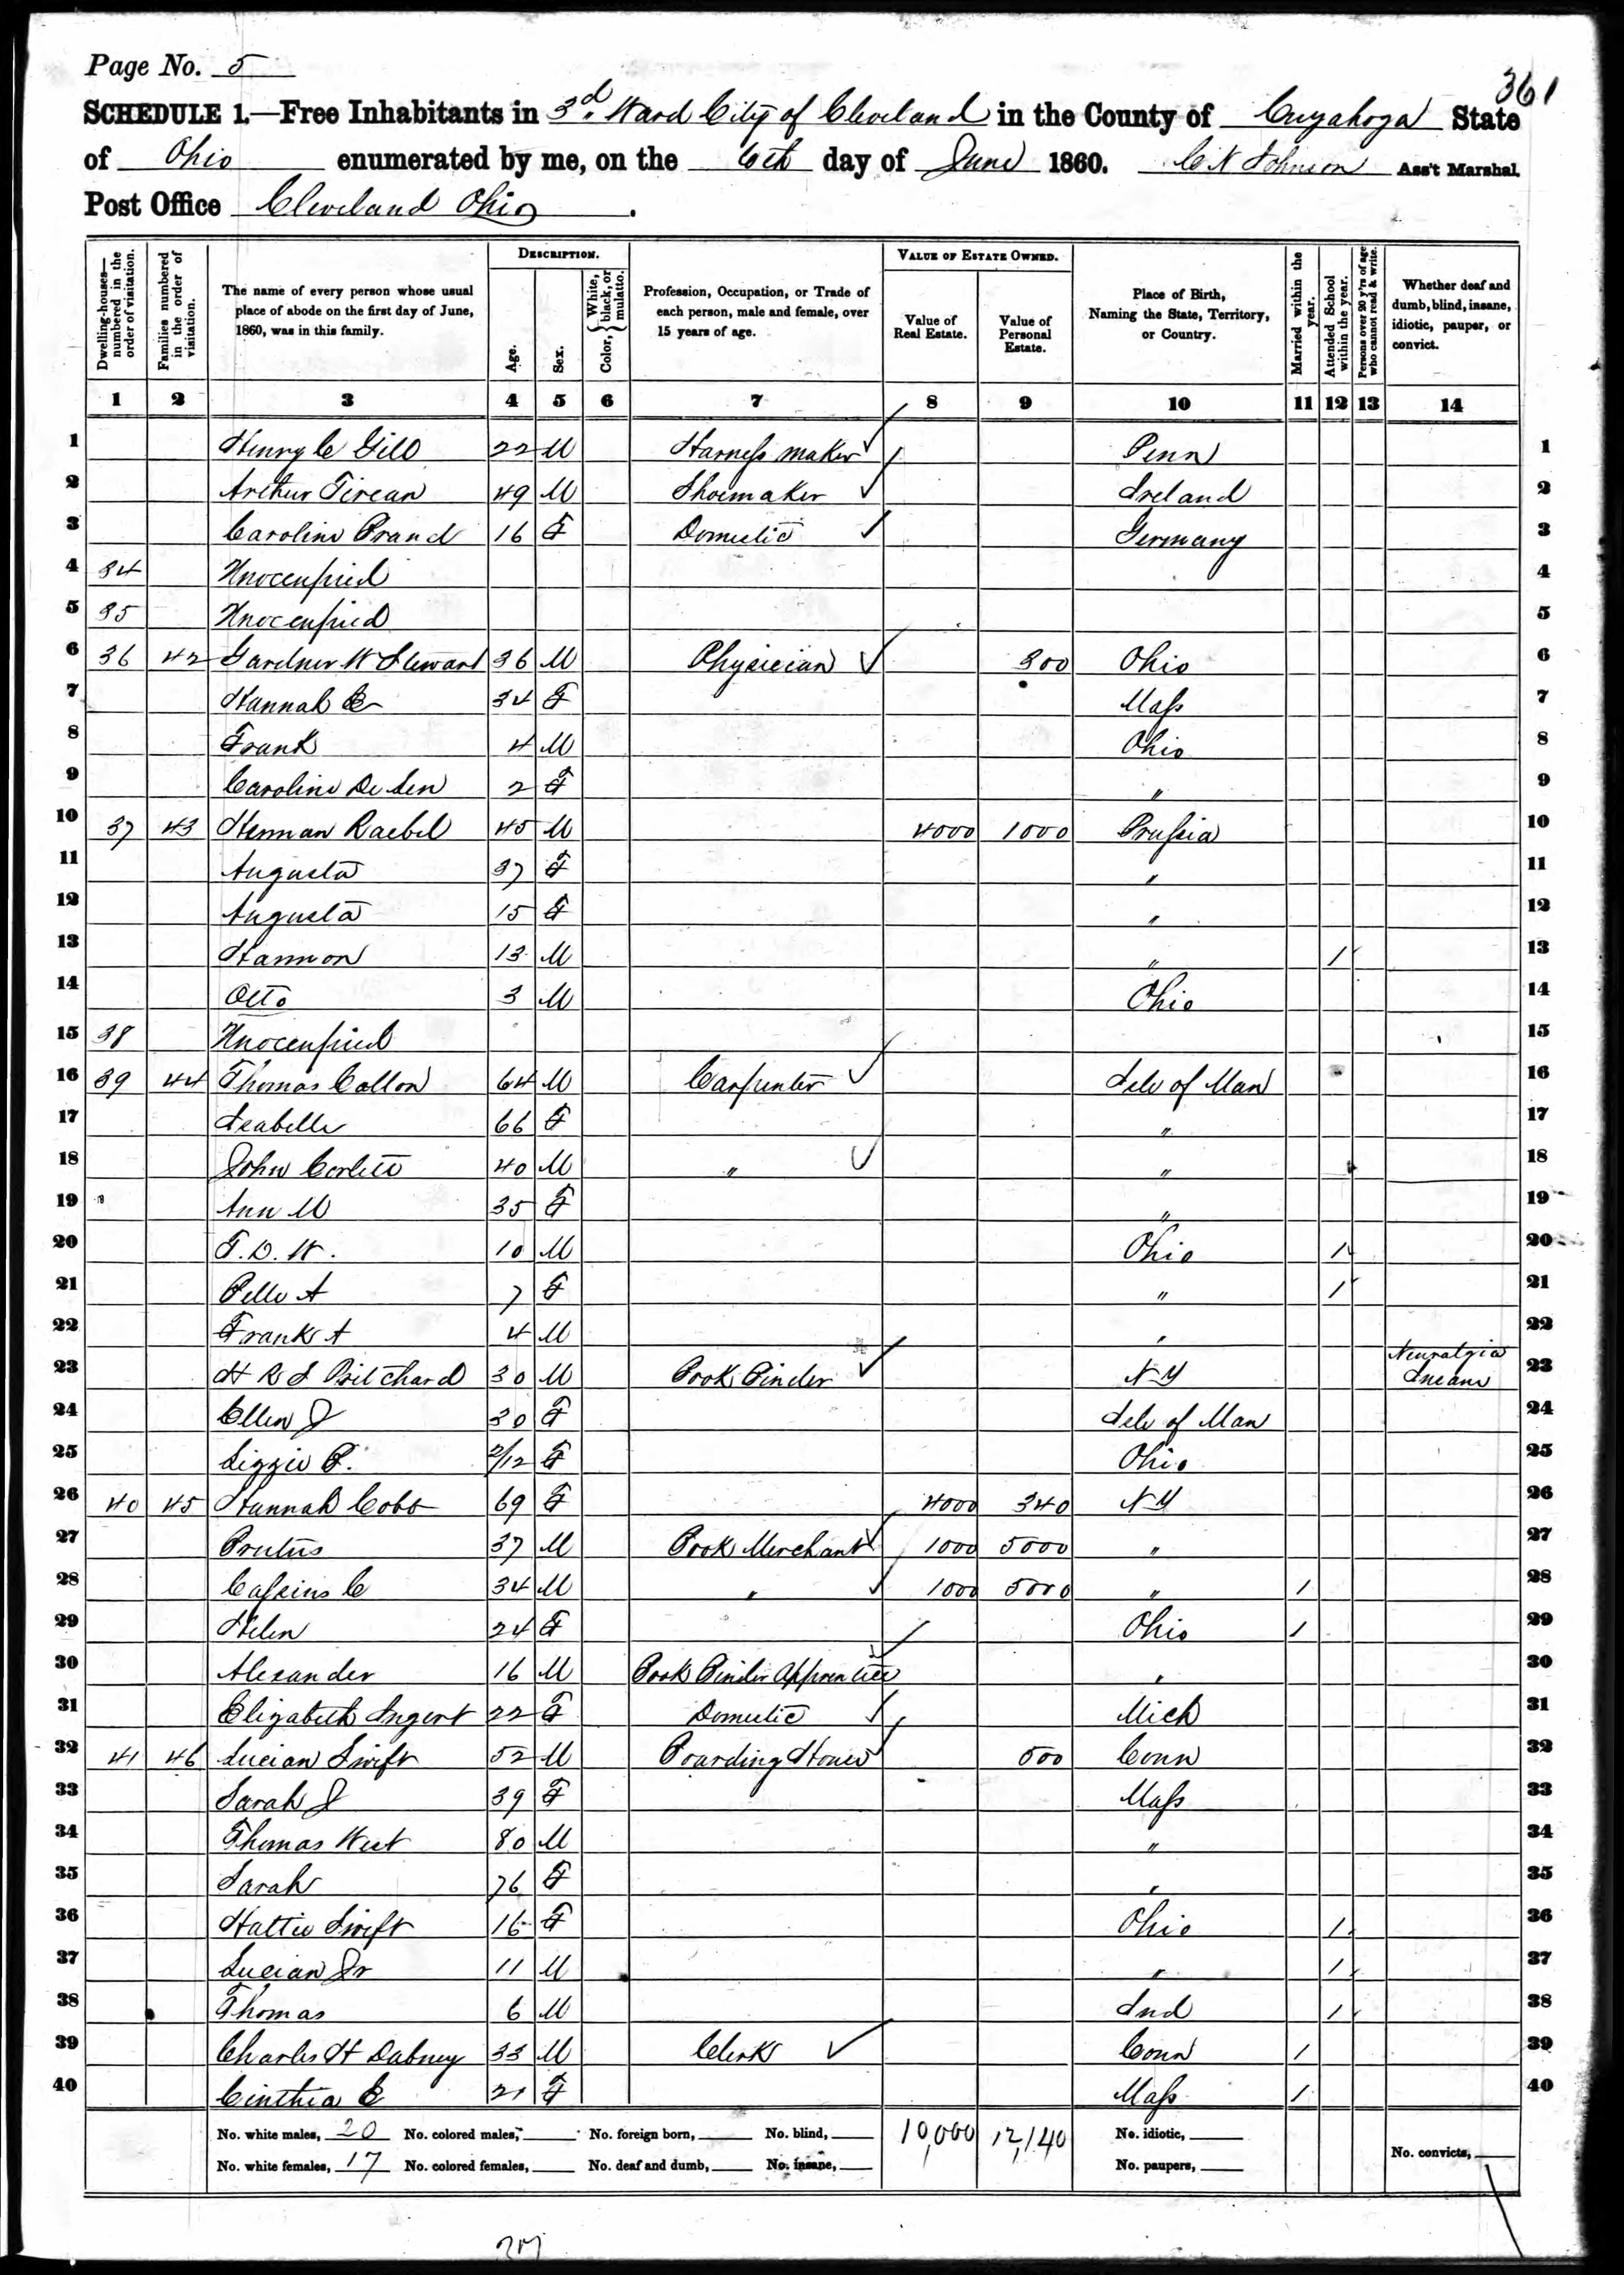 Page No. 5
361
SCHEDULE 1.—Free Inhabitants in 3d. Ward City of Cleveland in the County of Cuyahoga State
of Ohio enumerated by me, on the 6th day of June 1860. C N Johnson Ass't Marshal.
Post Office Cleveland Ohio.
Dwelling-houses—numbered in the order of visitation.
Families numbered in the order of visitation.
The name of every person whose usual place of abode on the first day of June, 1860, was in this family.
DESCRIPTION.
Age.
Sex.
Color, { White, black, or mulatto.
Profession, Occupation, or Trade of each person, male and female, over 15 years of age.
VALUE OF ESTATE OWNED.
Value of Real Estate.
Value of Personal Estate.
Place of Birth, Naming the State, Territory, or Country.
Married within the year.
Attended School within the year.
Persons over 20 y'rs of age who cannot read & write.
Whether deaf and dumb, blind, insane, idiotic, pauper, or convict.
1 2 3 4 5 6 7 8 9 10 11 12 13 14
1 Henry C Gill 22 M Harness maker Penn 1
2 Arthur 49 M Shoemaker Ireland 2
3 Caroline Brand 16 F Domestic Germany 3
4 34 Unoccupied 4
5 35 Unoccupied 5
6 36 42 Gardner W Stewart 36 M Physician 300 Ohio 6
7 Hannah 34 F Mass 7
8 Frank 4 M Ohio 8
9 Caroline 2 F " 9
10 37 43 Herman Raebel 45 M 4000 1000 Prussia 10
11 Augusta 37 F " 11
12 Augusta 15 F " 12
13 Harmon 13 M " 1 13
14 Otto 3 M Ohio 14
15 38 Unoccupied 15
16 39 44 Thomas Collon 64 M Carpenter Isle of Man 16
17 Isabelle 66 F " 17
18 John Corlett 40 M " " 18
19 Ann M 35 F " 19
20 T. D. W. 10 M Ohio 1 20
21 Belle A 7 F " 1 21
22 Frank A 4 M " 22
23 H R S Pritchard 30 M Book Binder N Y Neuralgia Insane 23
24 Ellen J 30 F Isle of Man 24
25 Lizzie B. 2/12 F Ohio 25
26 40 45 Hannah Cobb 69 F 4000 340 N Y 26
27 Brutus 37 M Book Merchant 1000 5000 " 27
28 Cassius C 34 M " 1000 5000 " 1 28
29 Helen 24 F Ohio 1 29
30 Alexander 16 M Book Binder Apprentice " 30
31 Elizabeth Ingert 22 F Domestic Mich 31
32 41 46 Lucian Swift 52 M Boarding House 500 Conn 32
33 Sarah J 39 F Mass 33
34 Thomas West 80 M " 34
35 Sarah 76 F " 35
36 Hattie Swift 16 F Ohio 1 36
37 Lucian Jr 11 M " 1 37
38 Thomas 6 M Ind 1 38
39 Charles H Dabney 33 M Clerk Conn 1 39
40 Cinthia E 21 F Mass 1 40
No. white males, 20 No. colored males, No. foreign born, No. blind, 10,000 12,140 No. idiotic,
No. white females, 17 No. colored females, No. deaf and dumb, No. insane, No. paupers, No. convicts,